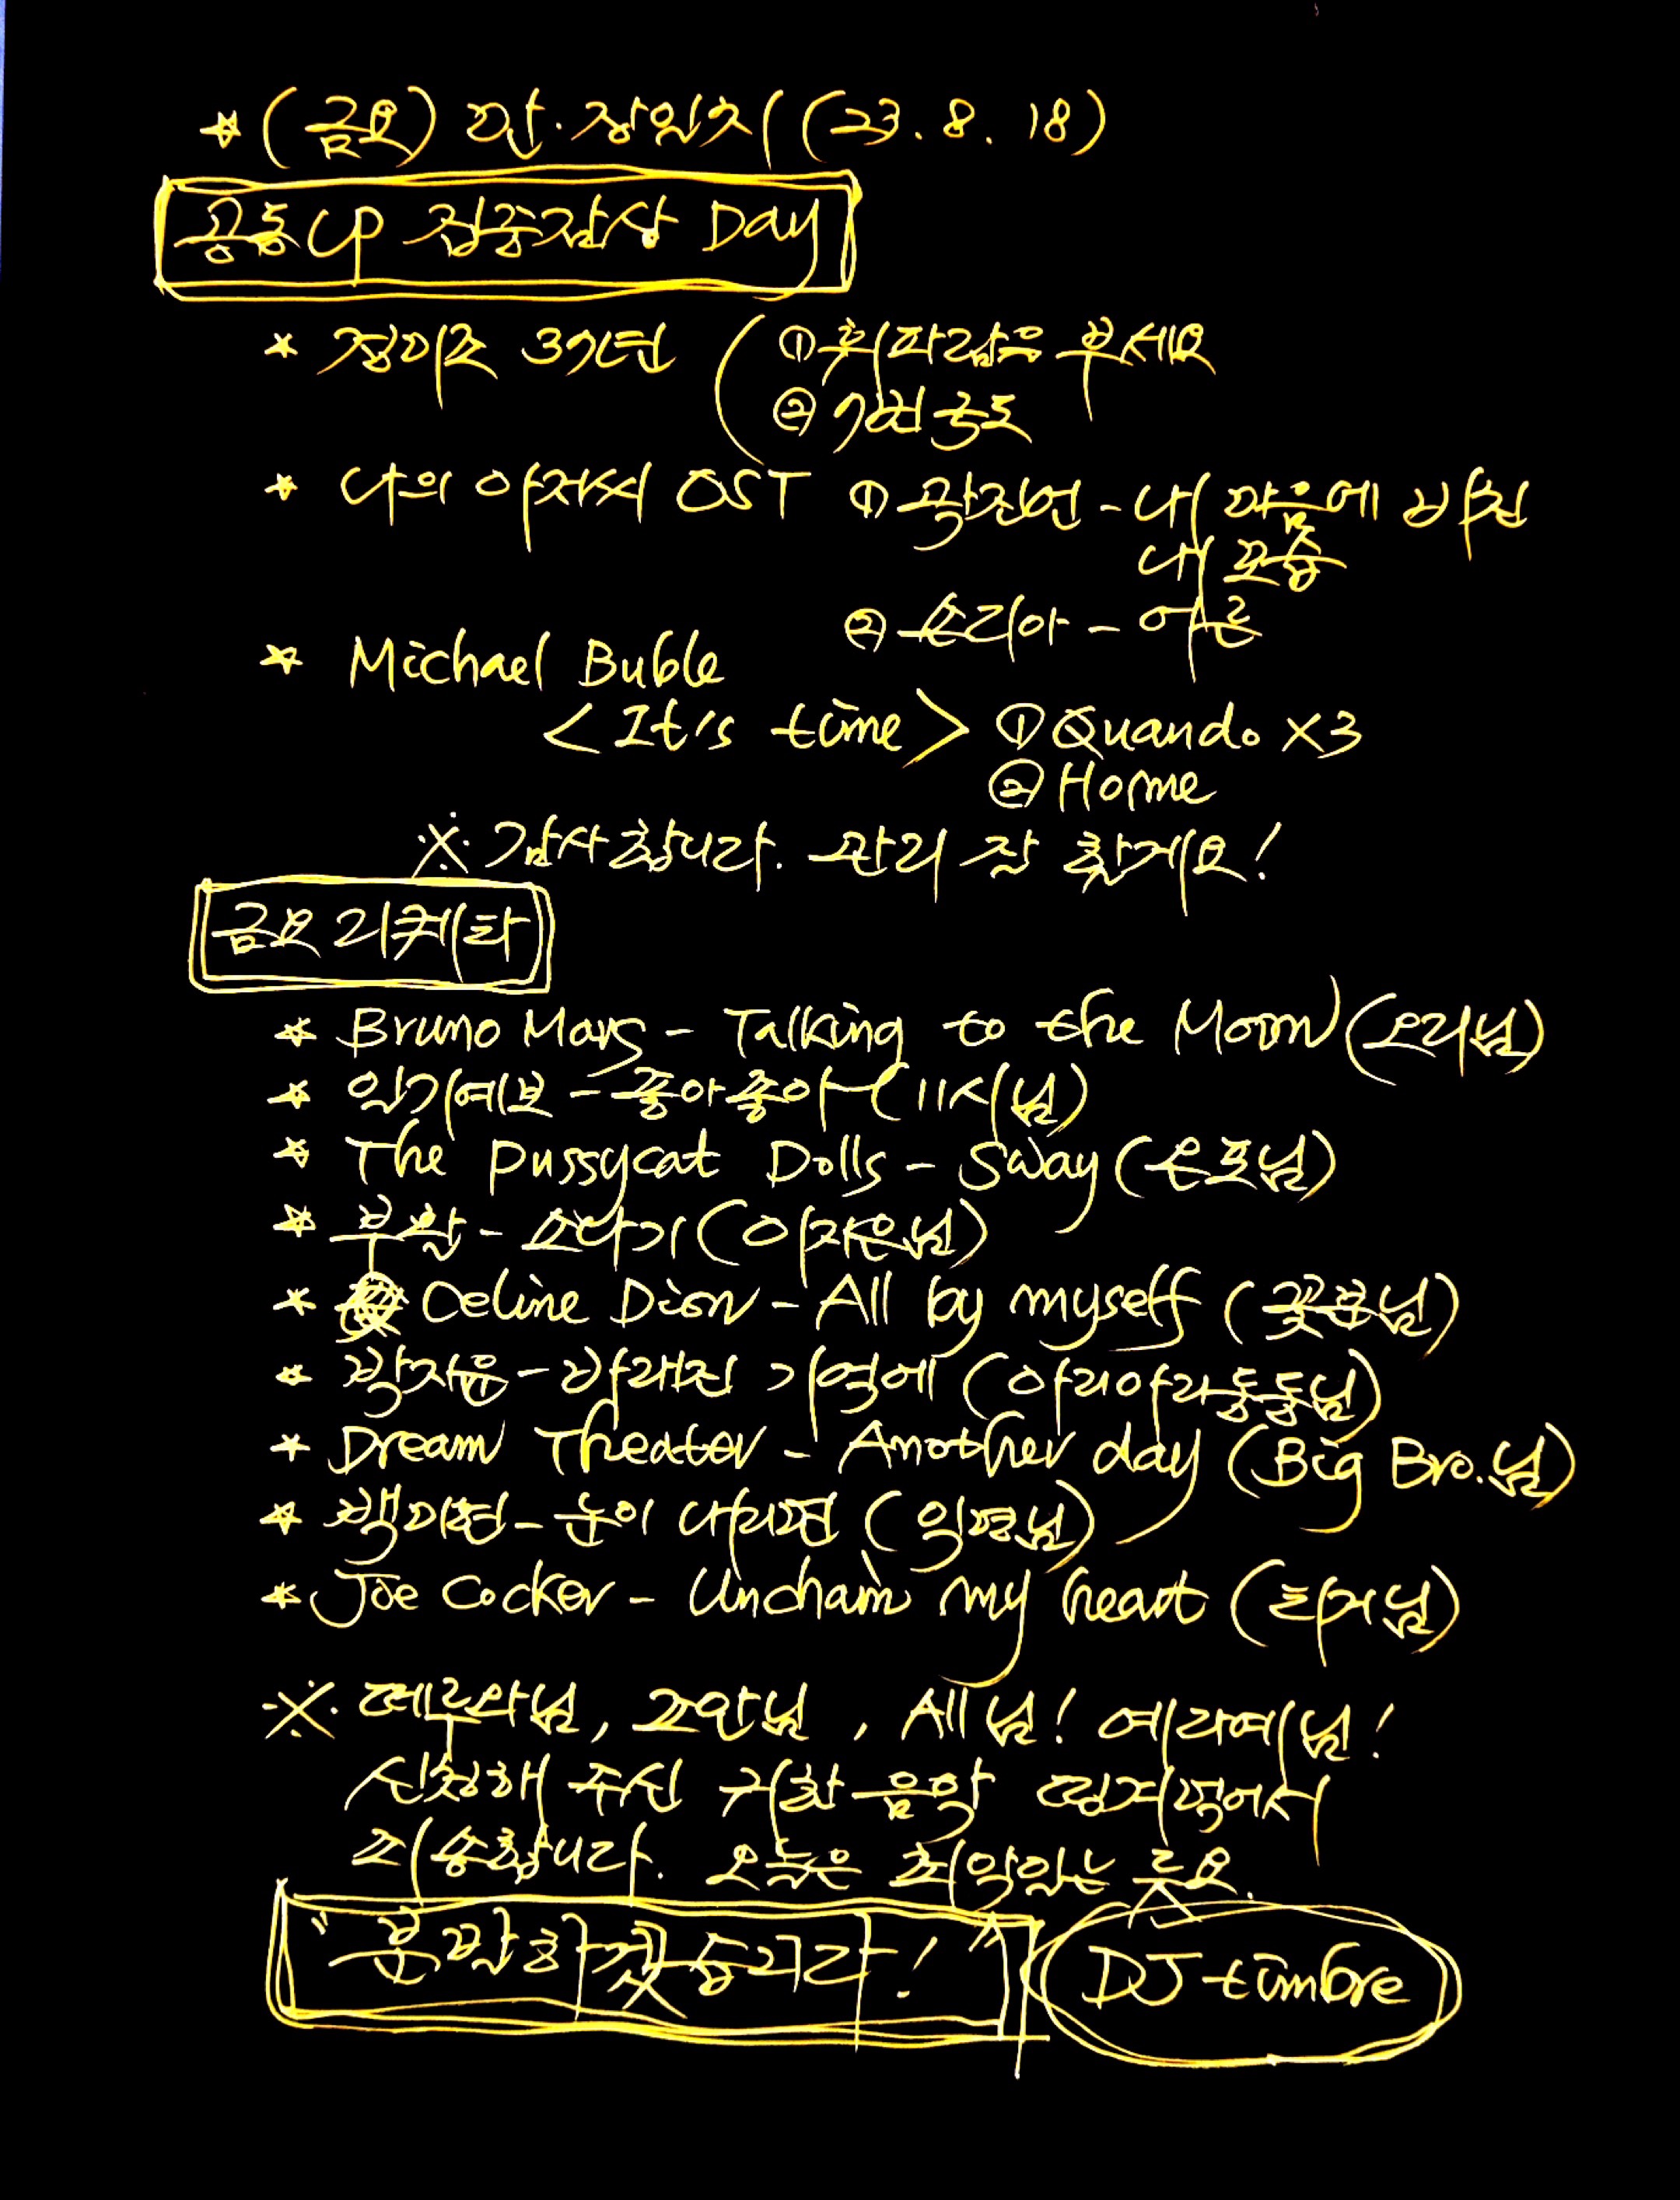 * (금요) 관.장일지 (23. 8. 18)
공동CP 집중감상 Day
* 정미조 37년 ① 휘파람을 부세요
② 개여울
* 나의 아저씨 OST ① 곽진언 - 내 마음에 비친
내 모습
② 손디아 - 어른
* Michael Buble
<It's time> ① Quando X3
② Home
※ 감사합니다. 관리 잘 할게요!
금요 리퀘타
* Bruno Mars - Talking to the Moon (오리님)
* 일기예보 - 좋아좋아 (11시님)
* The Pussycat Dolls - Sway (온프님)
* 부활 - 소나기 (이지은님)
* Celine Dion - All by myself (꽃분님)
* 곽지은 - 바래진 기억에 (아리아라동동님)
* Dream Theater - Another day (Big Bro.님)
* 박미현 - 눈이 내리면 (익명님)
* Joe Cocker - Unchain my heart (님)
※ 님, 님, All님! 에라에님!
신청해 주신 귀한 음악
죄송합니다. 오늘은
"분발하겠습니다!" DJ timbre